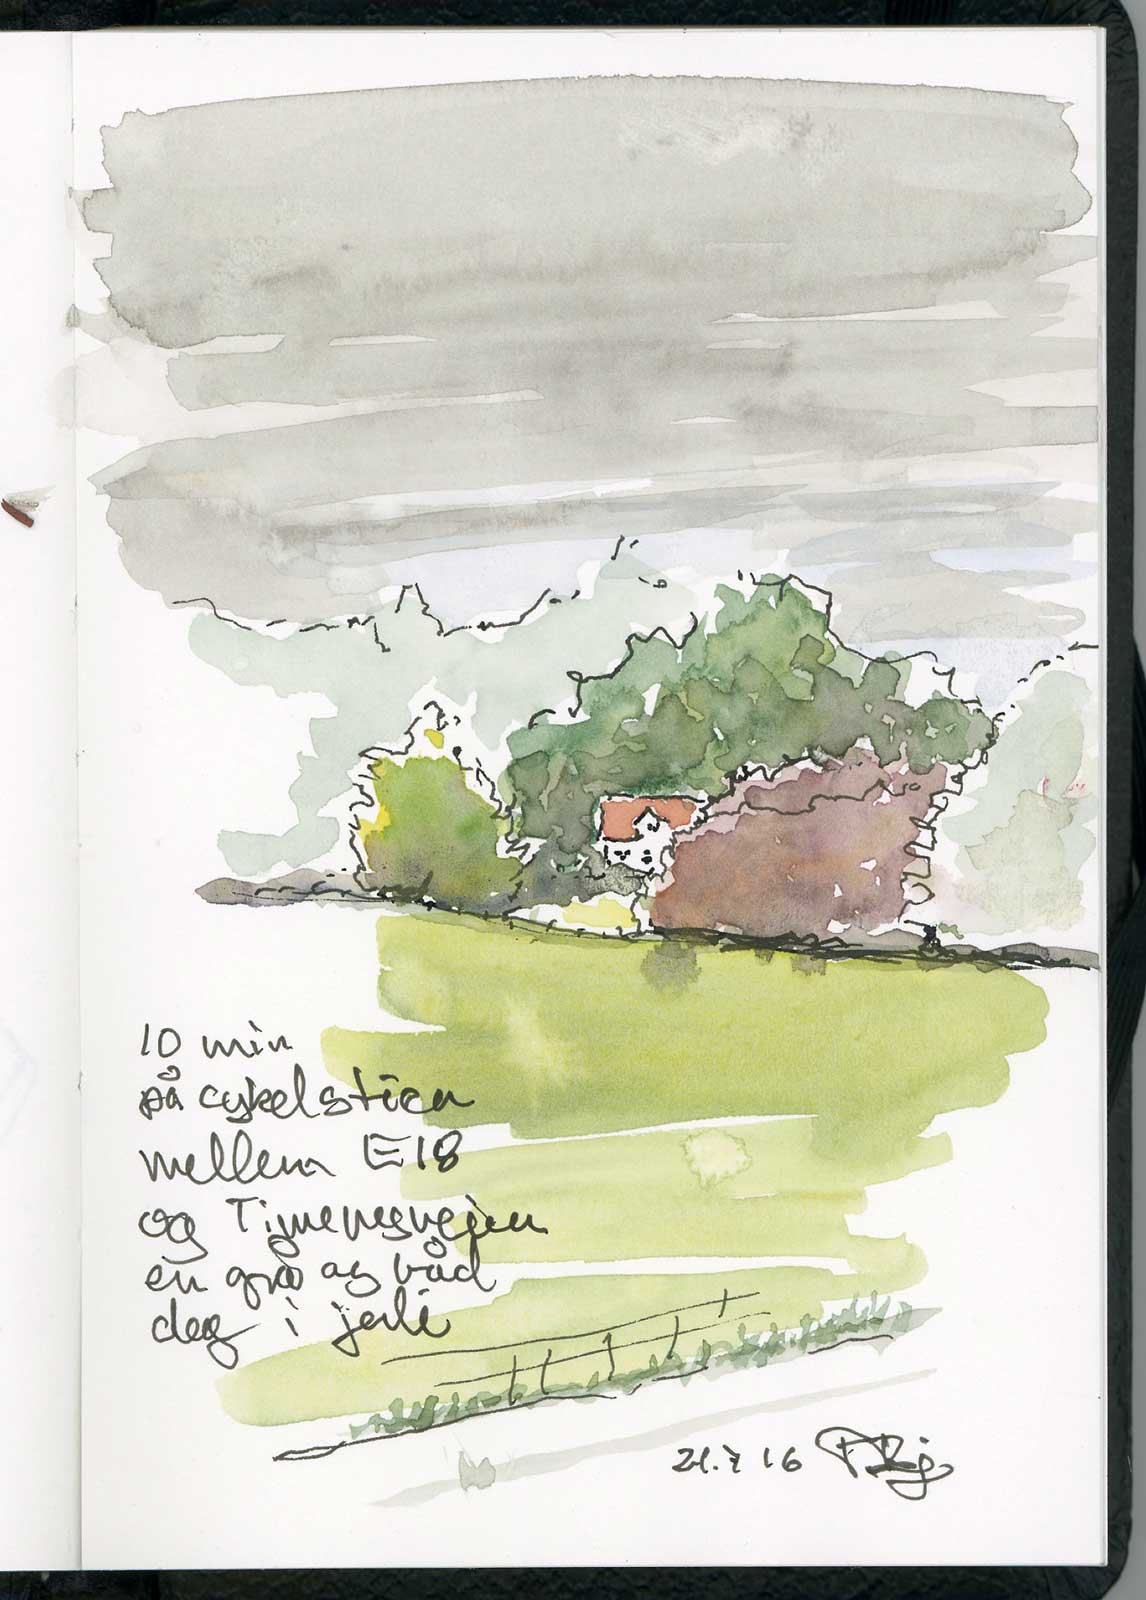 10 min
på cykelstien
mellem E18
og Timenesvejen
en grå og våd
dag i juli
21.7 16